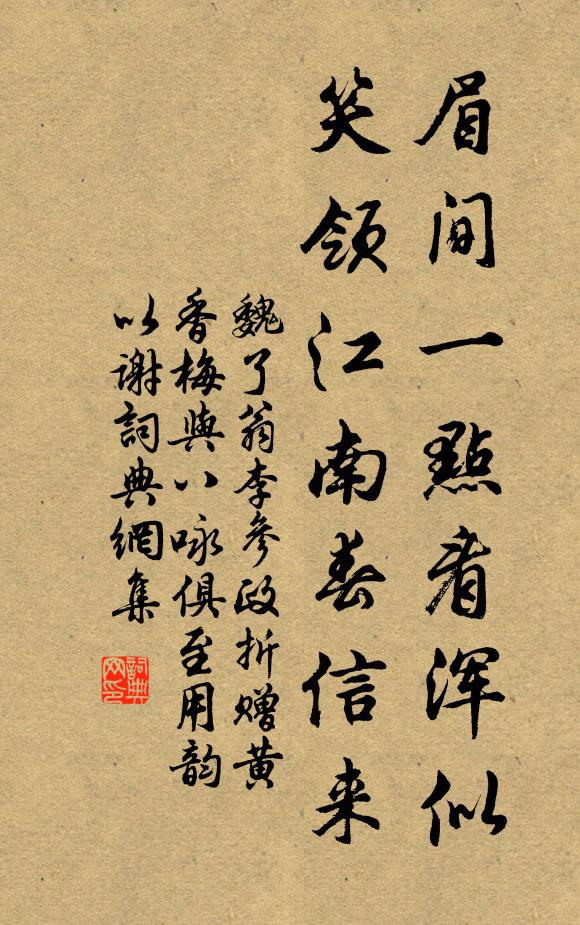 眉间一點看浑似
笑领江南春信来
魏了翁李參政折赠黄
香梅與八咏俱至用韵
以谢詞典網集
詞典网印